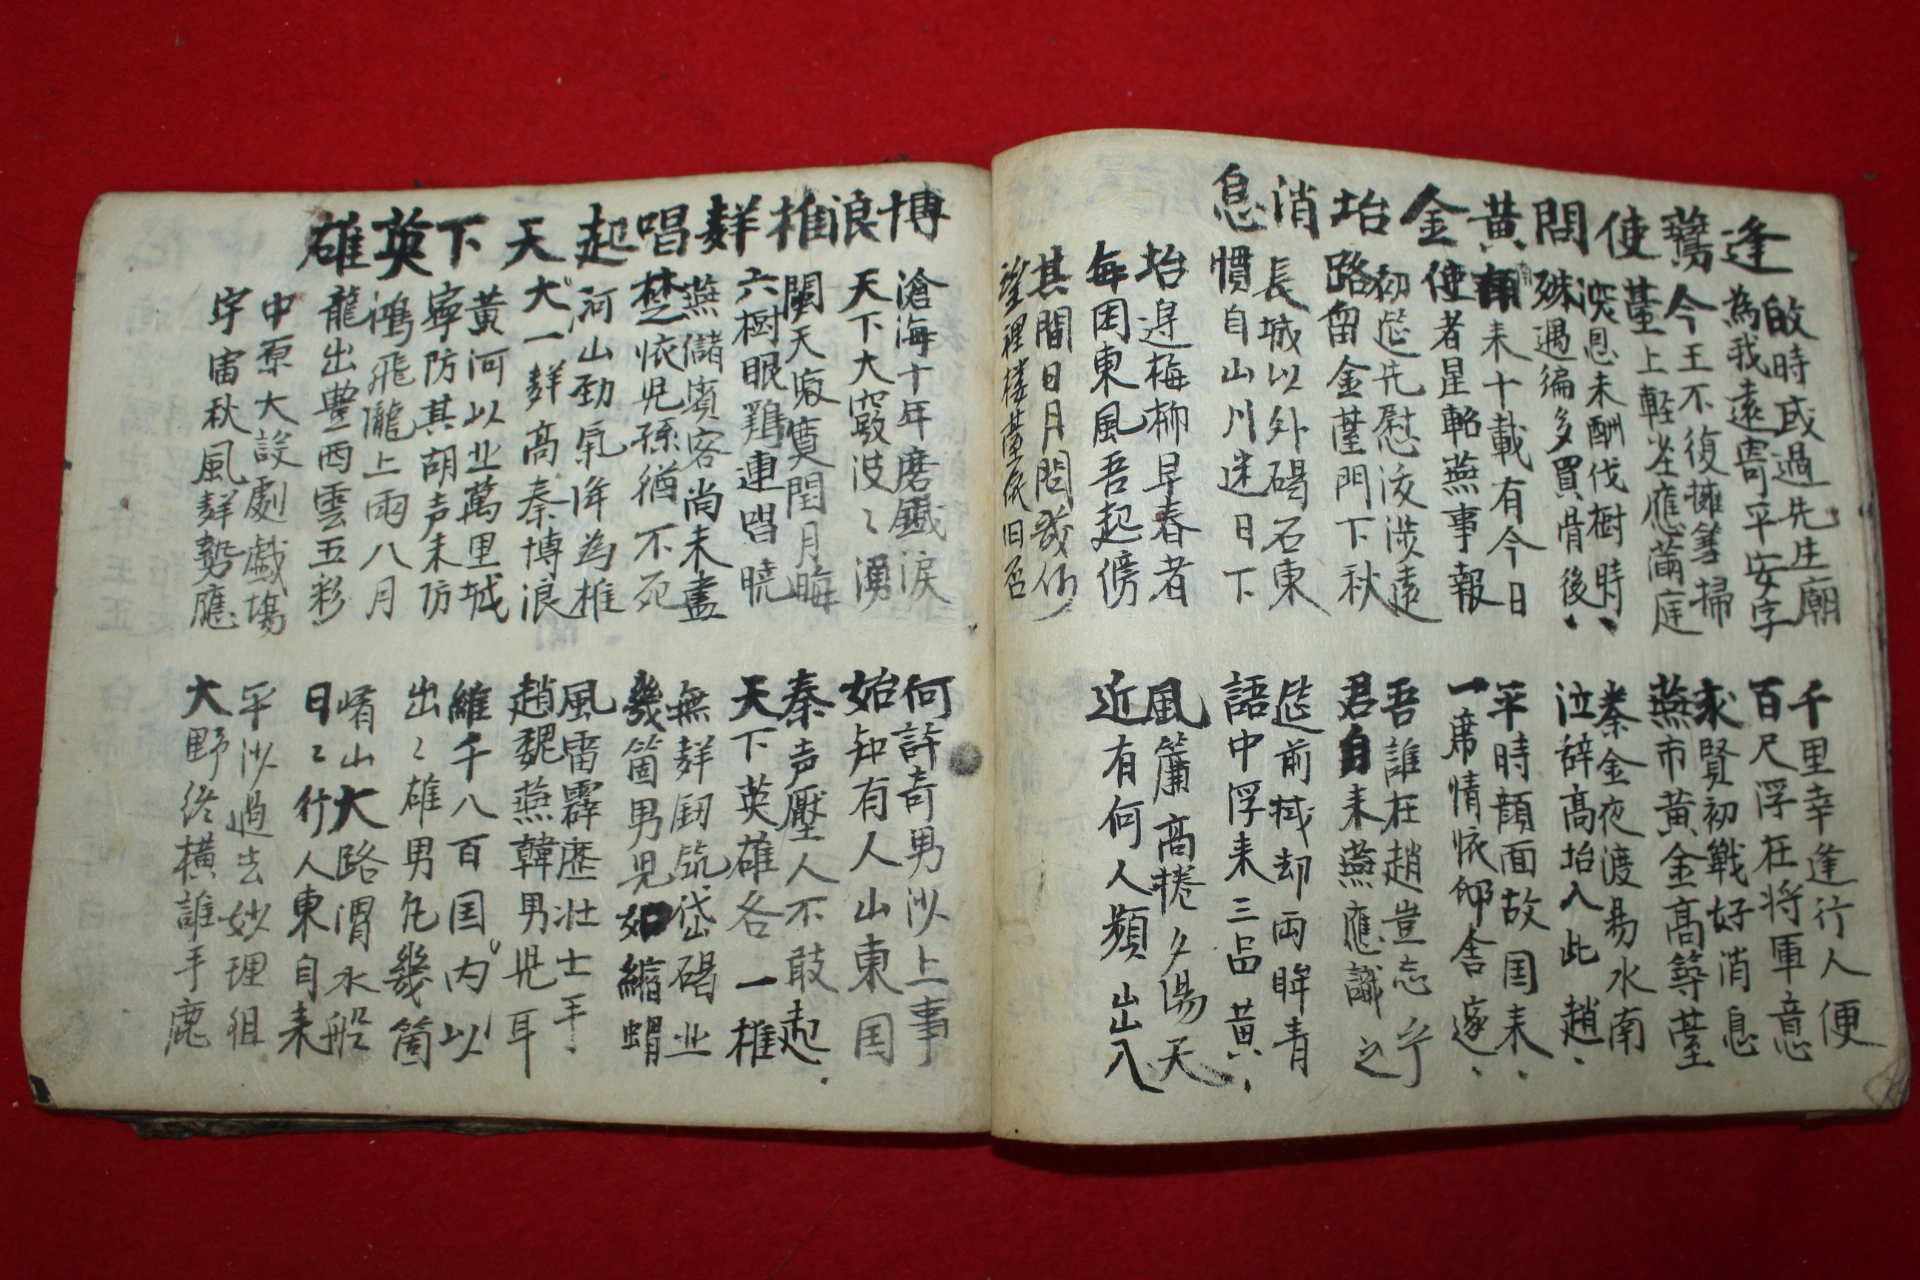 逢鷰使問黃金坮消息
啟時或過先生廟
為我遠寄平安字
今王不復擁篲掃
䑓上輕埃應滿庭
深恩未酬伐樹時
殊遇徧多買骨後
南来十載有今日
使者星軺燕事報
初筵先慰涉遠
路留金䑓門下秋
長城以外碣石東
慣自山川迷日下
坮邊梅柳早春者
每因東風吾起傍
其間日月問幾何
望裡樓䑓依旧否
千里幸逢行人便
百尺浮在將軍意
求賢初戰好消息
燕市黃金高等䑓
秦金夜渡易水南
泣辞高坮入此趙
平時顔面故国来
一席情懷仰舍遂
吾誰在趙豈忘乎
君自来燕應識之
筵前拭却兩眸青
語中浮来三品黃
風簾高捲夕陽天
近有何人頻出入
博浪椎聲唱起天下英雄
滄海十年磨鐵淚
天下大波〻湧
天寂寞閏月晦
六樹眼鶏連唱曉
燕儲賓客尚未盡
楚懷児孫猶不死
河山勁氣降為椎
大一聲高秦博浪
黃河以北萬里城
寧防其胡声未防
鴻飛瀧上雨八月
龍出豊西雲五彩
中原大設劇戱場
宇宙秋風聲勢應
何許奇男沙上事
始知有人山東国
秦声壓人不敢起
天下英雄各一椎
無聲釰筑岱碣北
幾箇男児如縮蝟
風雷霹歷壮士手
趙魏燕韓男児耳
維千八百国内以
出〻雄男凢幾箇
崤山大路渭水船
日〻行人東自来
平沙過去妙理狙
大野縱橫誰手鹿